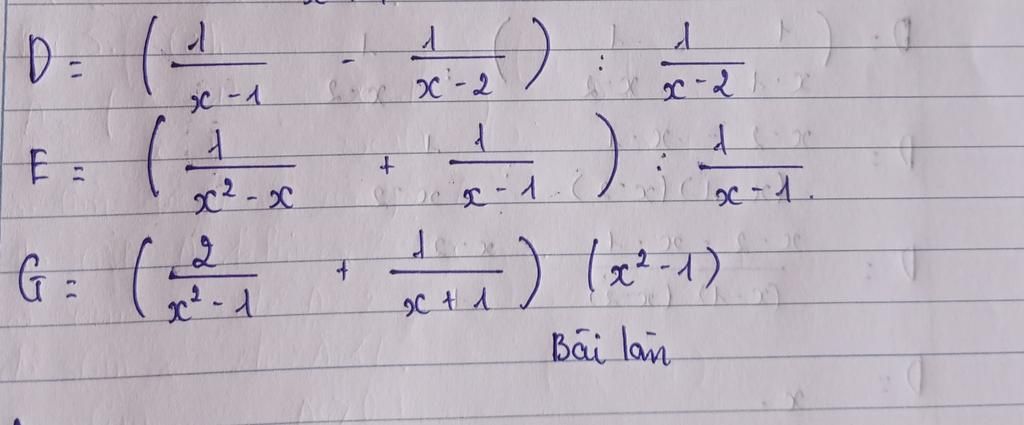 D = ( 1/(x - 1) - 1/(x - 2) ) : 1/(x - 2)
E = ( 1/(x² - x) + 1/(x - 1) ) : 1/(x - 1).
G = ( 2/(x² - 1) + 1/(x + 1) ) (x² - 1)
Bài làm